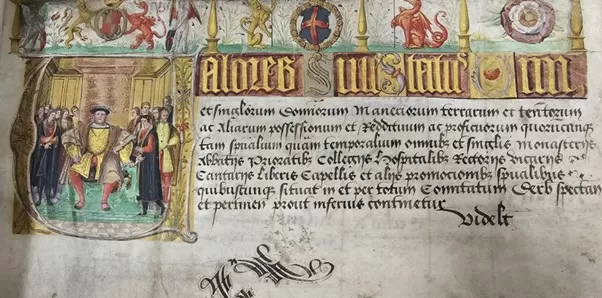 Valores
et singlorum Domiorum Maneriorum terrarum et tentorum
ac Aliarum possessionum et Reddituum ac proficuorum quorucunq
tam spualium quam temporalium omnibus et singlis monasterijs
Abbatijs Prioratibz Collegijs Hospitalibz Rectorijs Vicarijs
Cantarijs Liberis Capellis et alijs promocionibz spualibus
quibuscunque situat in et per totum Comitatum Derb spectan
et pertinen prout inferius continetur
Videlt